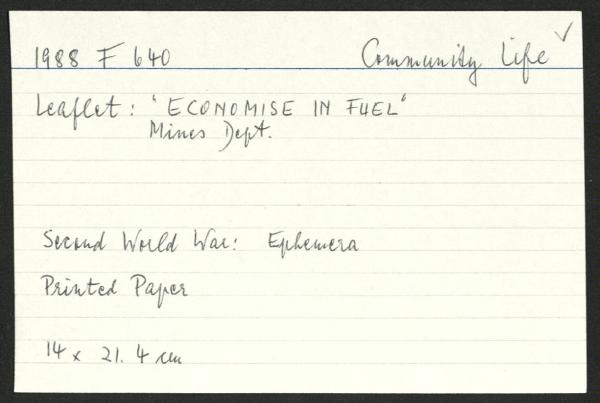 1988 F 640 Community Life ✓
Leaflet: 'ECONOMISE IN FUEL'
Mines Dept.
Second World War: Ephemera
Printed Paper
14 x 21.4 cm